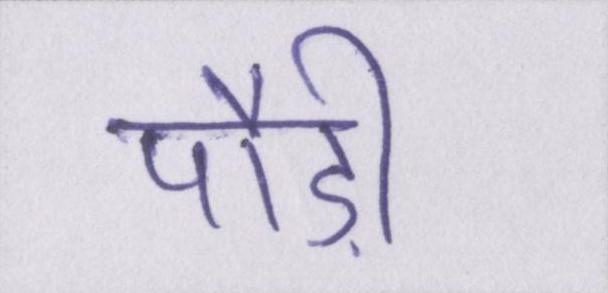 पौड़ी